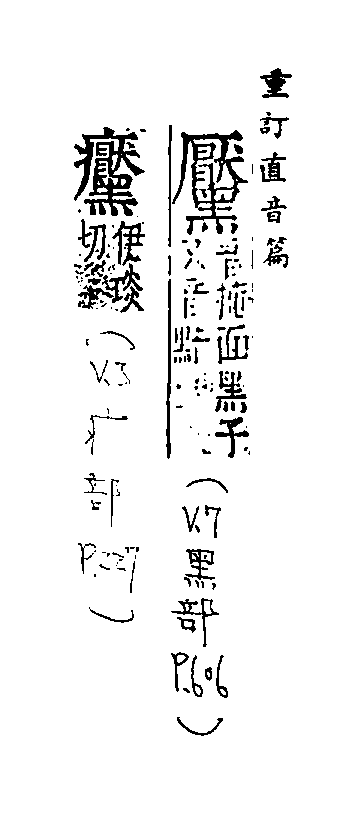 重訂直音篇
黶
音掩面黑子
又音黯
(V.7黑部P.606)
伊琰
切
(V.3疒部P.227)